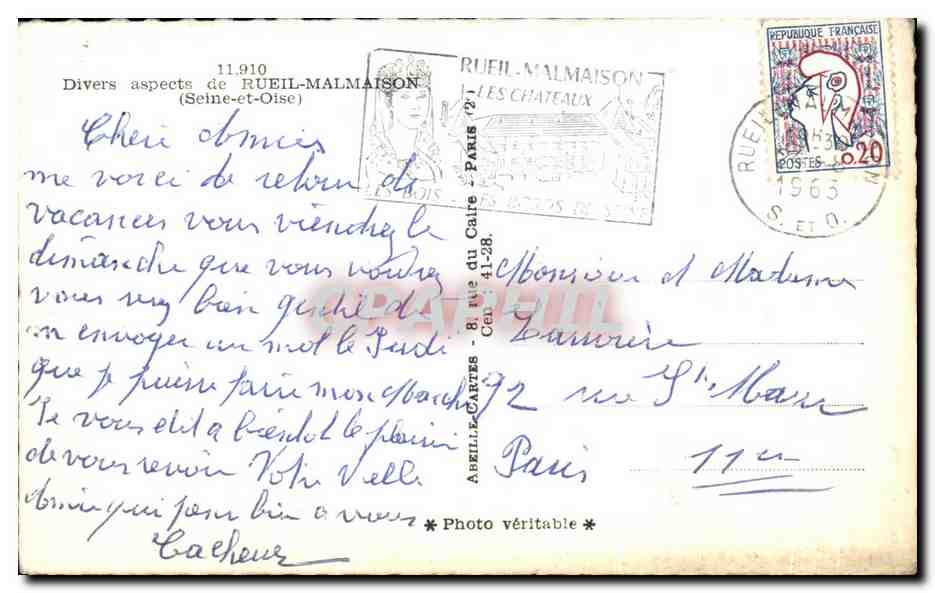 11.910
Divers aspects de RUEIL-MALMAISON
(Seine-et-Oise)
RUEIL-MALMAISON
LES CHATEAUX
BOIS - LES BORDS DE SEINE
REPUBLIQUE FRANÇAISE
POSTES 0.20
RUEIL
1963
S. ET O.
Cheri Amies
me voici de retour de
vacances vous viendrez le
dimanche que vous voudrez
vous serez bien gentil de
m envoyer un mot le Jeudi
que je puisse faire mon Marché
Je vous dit a bientot le plaisir
de vous revoir Votre Veille
Amie qui pense bien a vous
ABEILLE-CARTES - 8, rue du Caire - PARIS (2e)
Cen. 41-28.
Monsieur et Madame
92 rue St Maur
Paris 11em
* Photo véritable *
CPAPHIL